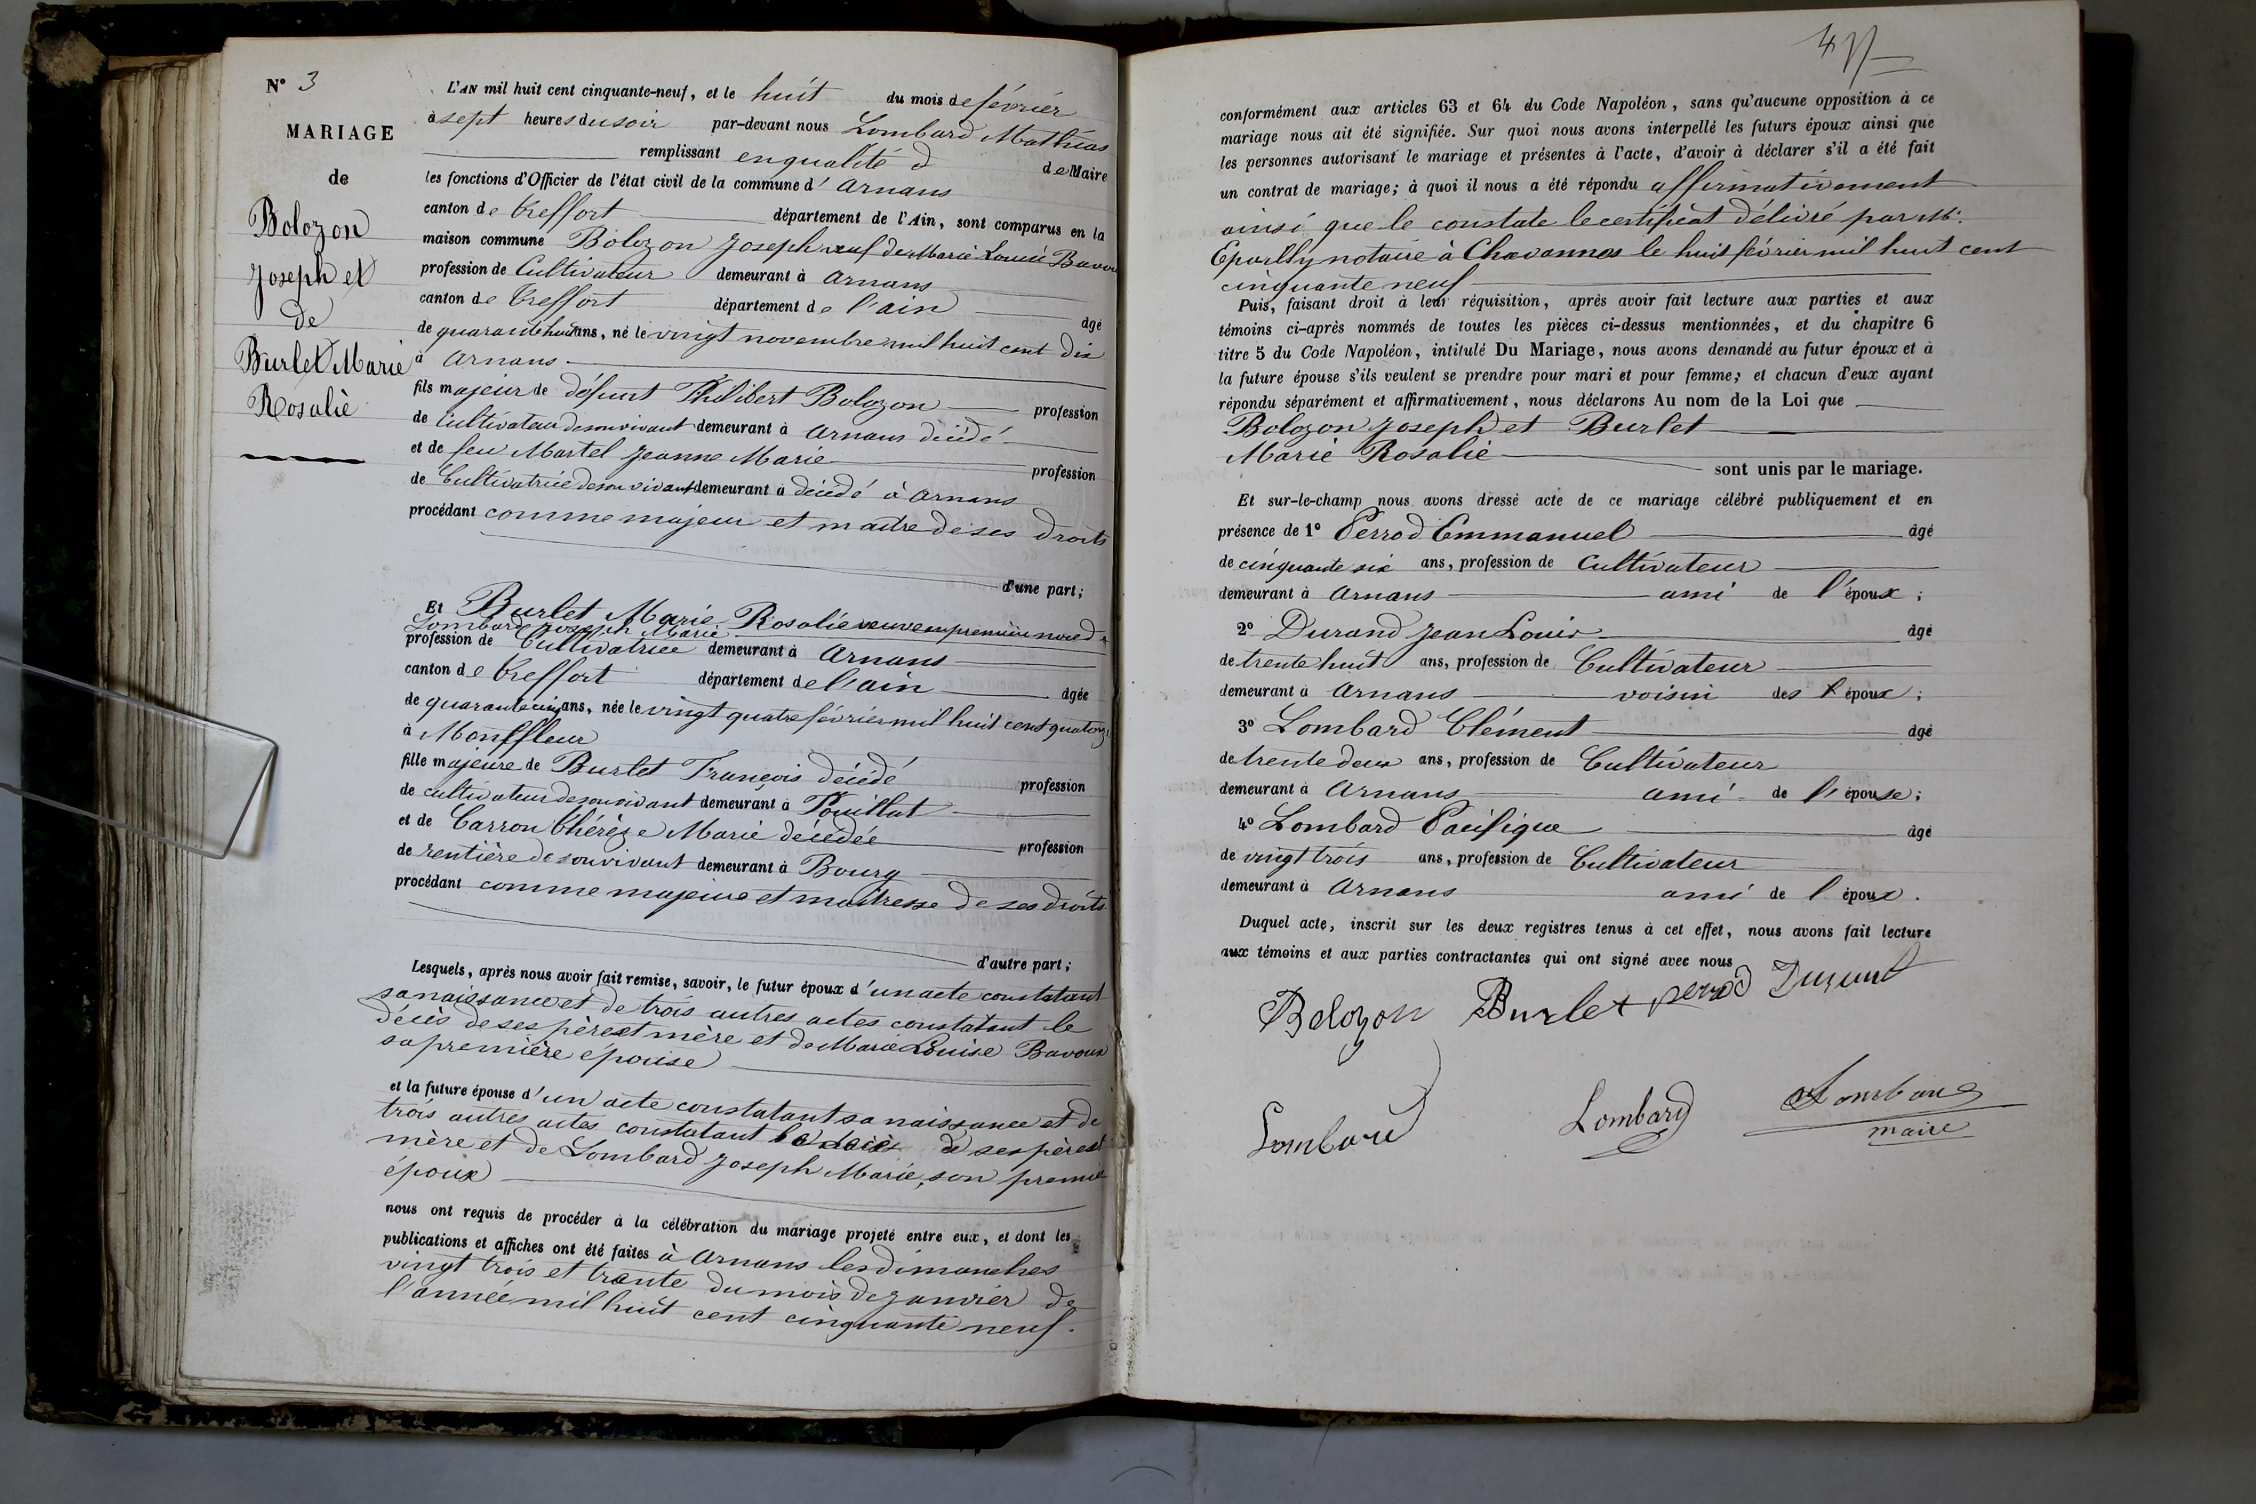 N° 3
MARIAGE
de
Bolozon
Joseph et
de
Burlet Marie
Rosalie
L'AN mil huit cent cinquante-neuf, et le huit du mois de février
à sept heures du soir par-devant nous Lombard Mathias
remplissant en qualité d de Maire
les fonctions d'Officier de l'état civil de la commune d' Arnans
canton de Treffort département de l'Ain, sont comparus en la
maison commune Bolozon Joseph veuf de Marie Louise Bavoux
profession de Cultivateur demeurant à Arnans
canton de Treffort département de l'ain âgé
de quarante huit ans, né le vingt novembre mil huit cent dix
à Arnans
fils majeur de défunt Philibert Bolozon profession
de Cultivateur de son vivant demeurant à Arnans décédé
et de feu Martel Jeanne Marie profession
de Cultivatrice de son vivant demeurant à décédé à Arnans
procédant comme majeur et maître de ses droits
d'une part;
Et Burlet Marie Rosalie veuve en première noce de
Lombard Joseph Marie
profession de Cultivatrice demeurant à Arnans
canton de Treffort département de l'ain âgée
de quarante cinq ans, née le vingt quatre février mil huit cent quatorze
à Montfleur
fille majeure de Burlet François décédé profession
de cultivateur de son vivant demeurant à Pouillat
et de Carron Thérèze Marie décédée profession
de rentière de son vivant demeurant à Bourg
procédant comme majeure et maîtresse de ses droits
d'autre part;
Lesquels, après nous avoir fait remise, savoir, le futur époux d'un acte constatant
sa naissance et de trois autres actes constatant le
décès de ses père et mère et de Marie Louise Bavoux
sa première épouse
et la future épouse d'un acte constatant sa naissance et de
trois autres actes constatant le décès de ses père et
mère et de Lombard Joseph Marie, son premier
époux
nous ont requis de procéder à la célébration du mariage projeté entre eux, et dont les
publications et affiches ont été faites à Arnans les dimanches
vingt trois et trente du mois de janvier de
l'année mil huit cent cinquante neuf.
conformément aux articles 63 et 64 du Code Napoléon, sans qu'aucune opposition à ce
mariage nous ait été signifiée. Sur quoi nous avons interpellé les futurs époux ainsi que
les personnes autorisant le mariage et présentes à l'acte, d'avoir à déclarer s'il a été fait
un contrat de mariage; à quoi il nous a été répondu affirmativement
ainsi que le constate le certificat délivré par Me.
Eparlly notaire à Chavannes le huit février mil huit cent
cinquante neuf
Puis, faisant droit à leur réquisition, après avoir fait lecture aux parties et aux
témoins ci-après nommés de toutes les pièces ci-dessus mentionnées, et du chapitre 6
titre 5 du Code Napoléon, intitulé Du Mariage, nous avons demandé au futur époux et à
la future épouse s'ils veulent se prendre pour mari et pour femme; et chacun d'eux ayant
répondu séparément et affirmativement, nous déclarons Au nom de la Loi que
Bolozon Joseph et Burlet
Marie Rosalie
sont unis par le mariage.
Et sur-le-champ nous avons dressé acte de ce mariage célébré publiquement et en
présence de 1° Perrod Emmanuel âgé
de cinquante six ans, profession de Cultivateur
demeurant à Arnans ami de l'époux;
2° Durand Jean Louis âgé
de trente huit ans, profession de Cultivateur
demeurant à Arnans voisin des époux;
3° Lombard Clément âgé
de trente deux ans, profession de Cultivateur
demeurant à Arnans ami de l'épouse;
4° Lombard Pacifique âgé
de vingt trois ans, profession de Cultivateur
demeurant à Arnans ami de l époux.
Duquel acte, inscrit sur les deux registres tenus à cet effet, nous avons fait lecture
aux témoins et aux parties contractantes qui ont signé avec nous
Bolozon Burlet perrod Durand
Lombard Lombard Lombard
maire